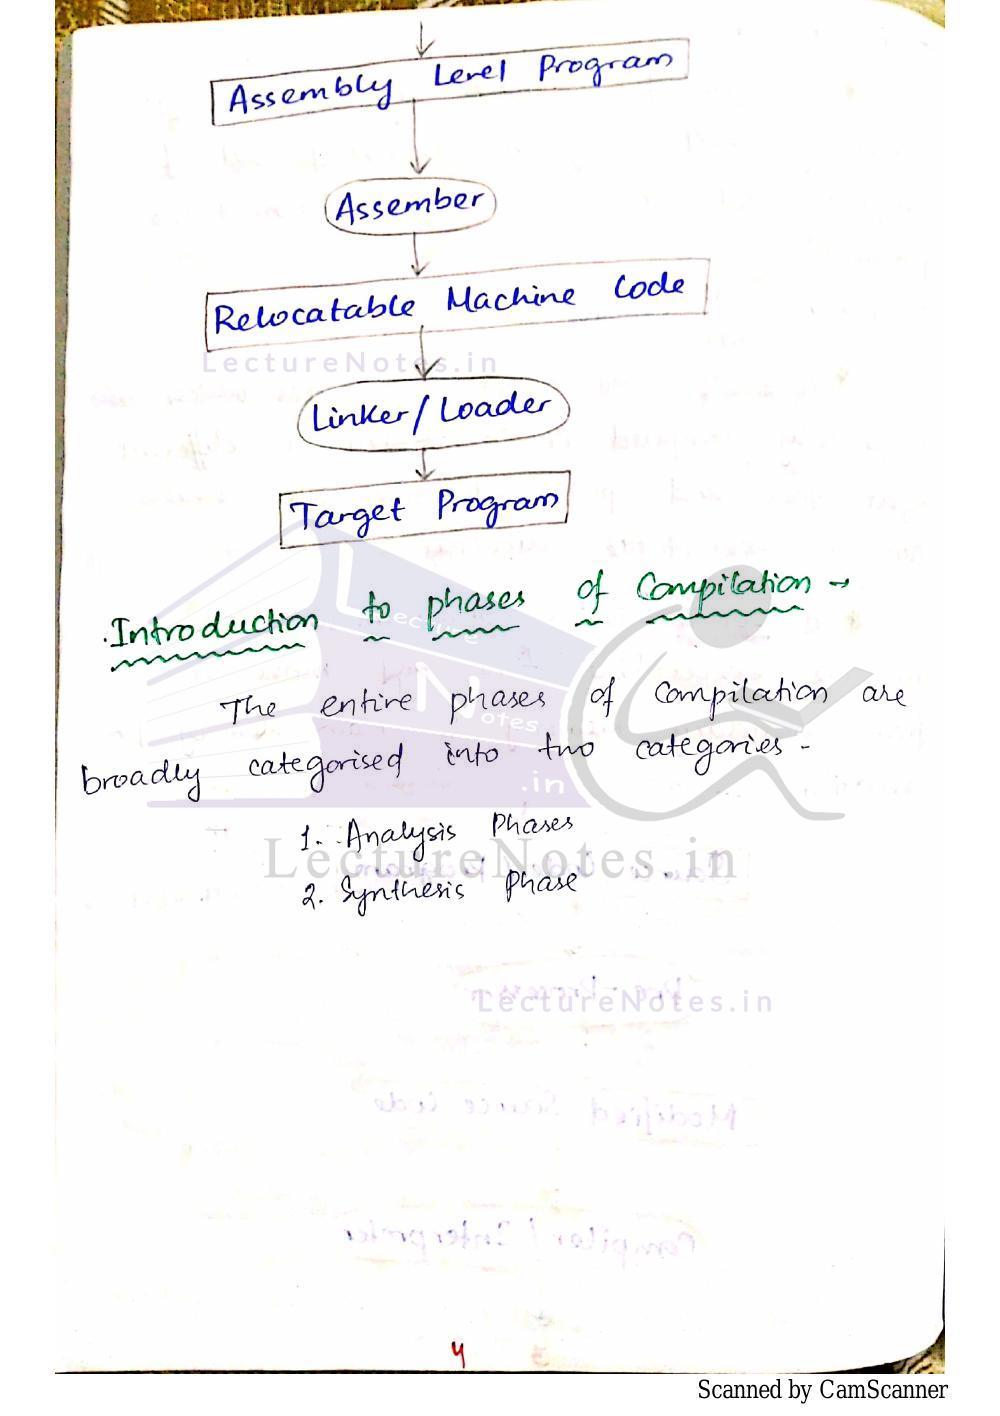 Assembly Level Program
Assember
Relocatable Machine Code
LectureNotes.in
Linker/Loader
Target Program
Introduction to phases of Compilation →
Lecture
Notes
.in
The entire phases of compilation are
broadly categorised into two categories -
1. Analysis Phases
LectureNotes.in
2. Synthesis phase
LectureNotes.in
4
Scanned by CamScanner